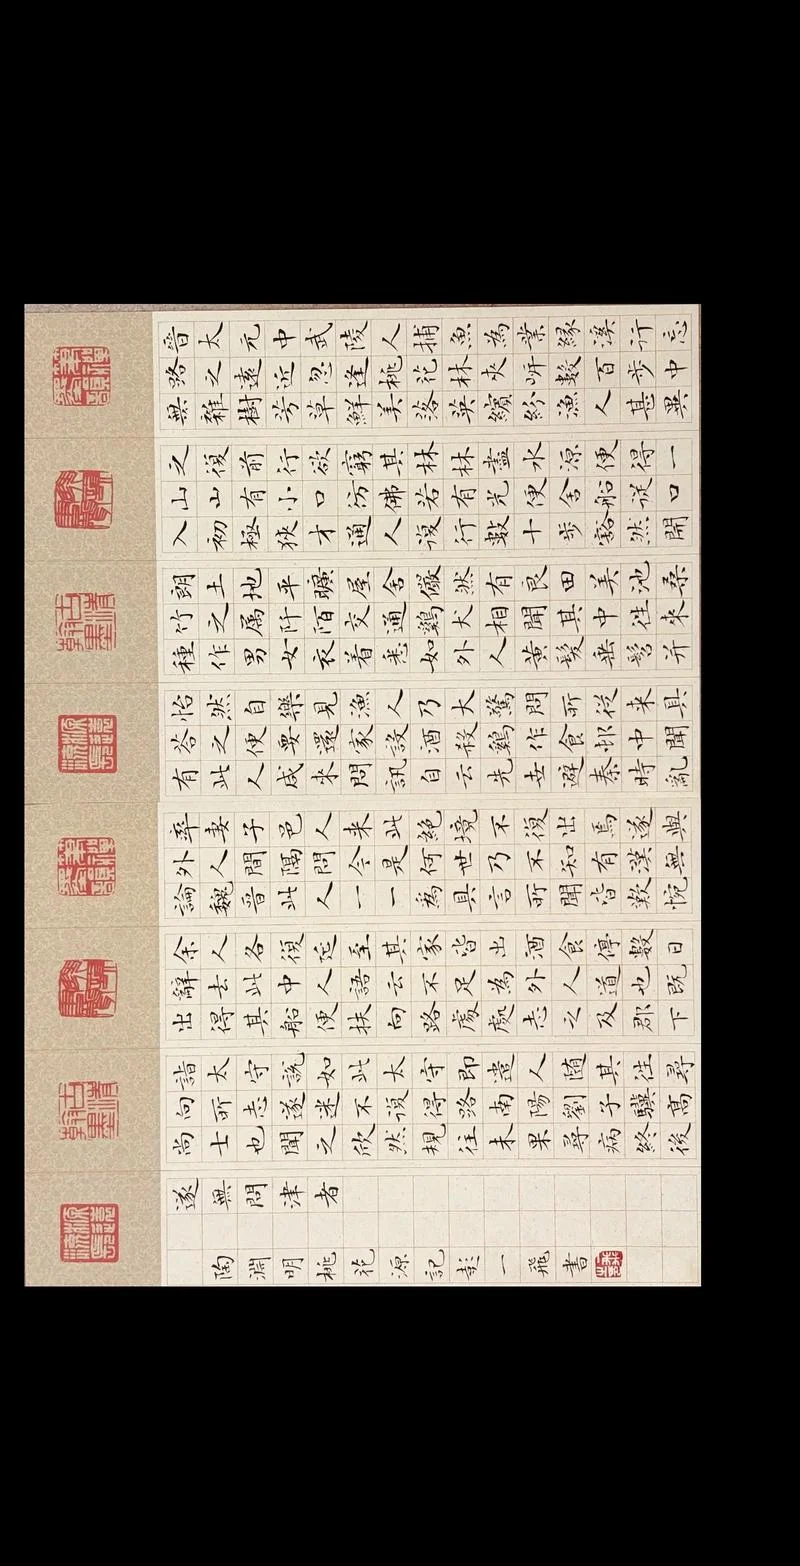 晉太元中武陵人捕魚為業緣溪行忘
路之遠近忽逢桃花林夾岸數百步中
無雜樹芳草鮮美落英繽紛漁人甚異
之復前行欲窮其林林盡水源便得一
山山有小口彷佛若有光便舍船從口
入初極狹才通人復行數十步豁然開
朗土地平曠屋舍儼然有良田美池桑
竹之属阡陌交通鷄犬相聞其中往來
種作男女衣着悉如外人黄髮垂髫并
怡然自樂見漁人乃大驚問所從来具
答之便要還家設酒殺鷄作食邨中聞
有此人咸來問訊自云先世避秦時亂
率妻子邑人来此絕境不復出焉遂與
外人間隔問今是何世乃不知有漢無
論魏晉此人一一為具言所聞皆歎惋
余人各復延至其家皆出酒食停數日
辭去此中人語云不足為外人道也既
出得其船便扶向路處處志之及郡下
詣太守說如此太守即遣人随其往尋
向所志遂迷不復得路南陽劉子驥高
尚士也聞之欣然規往未果尋病終後
遂無問津者
陶淵明桃花源記彭一飛書